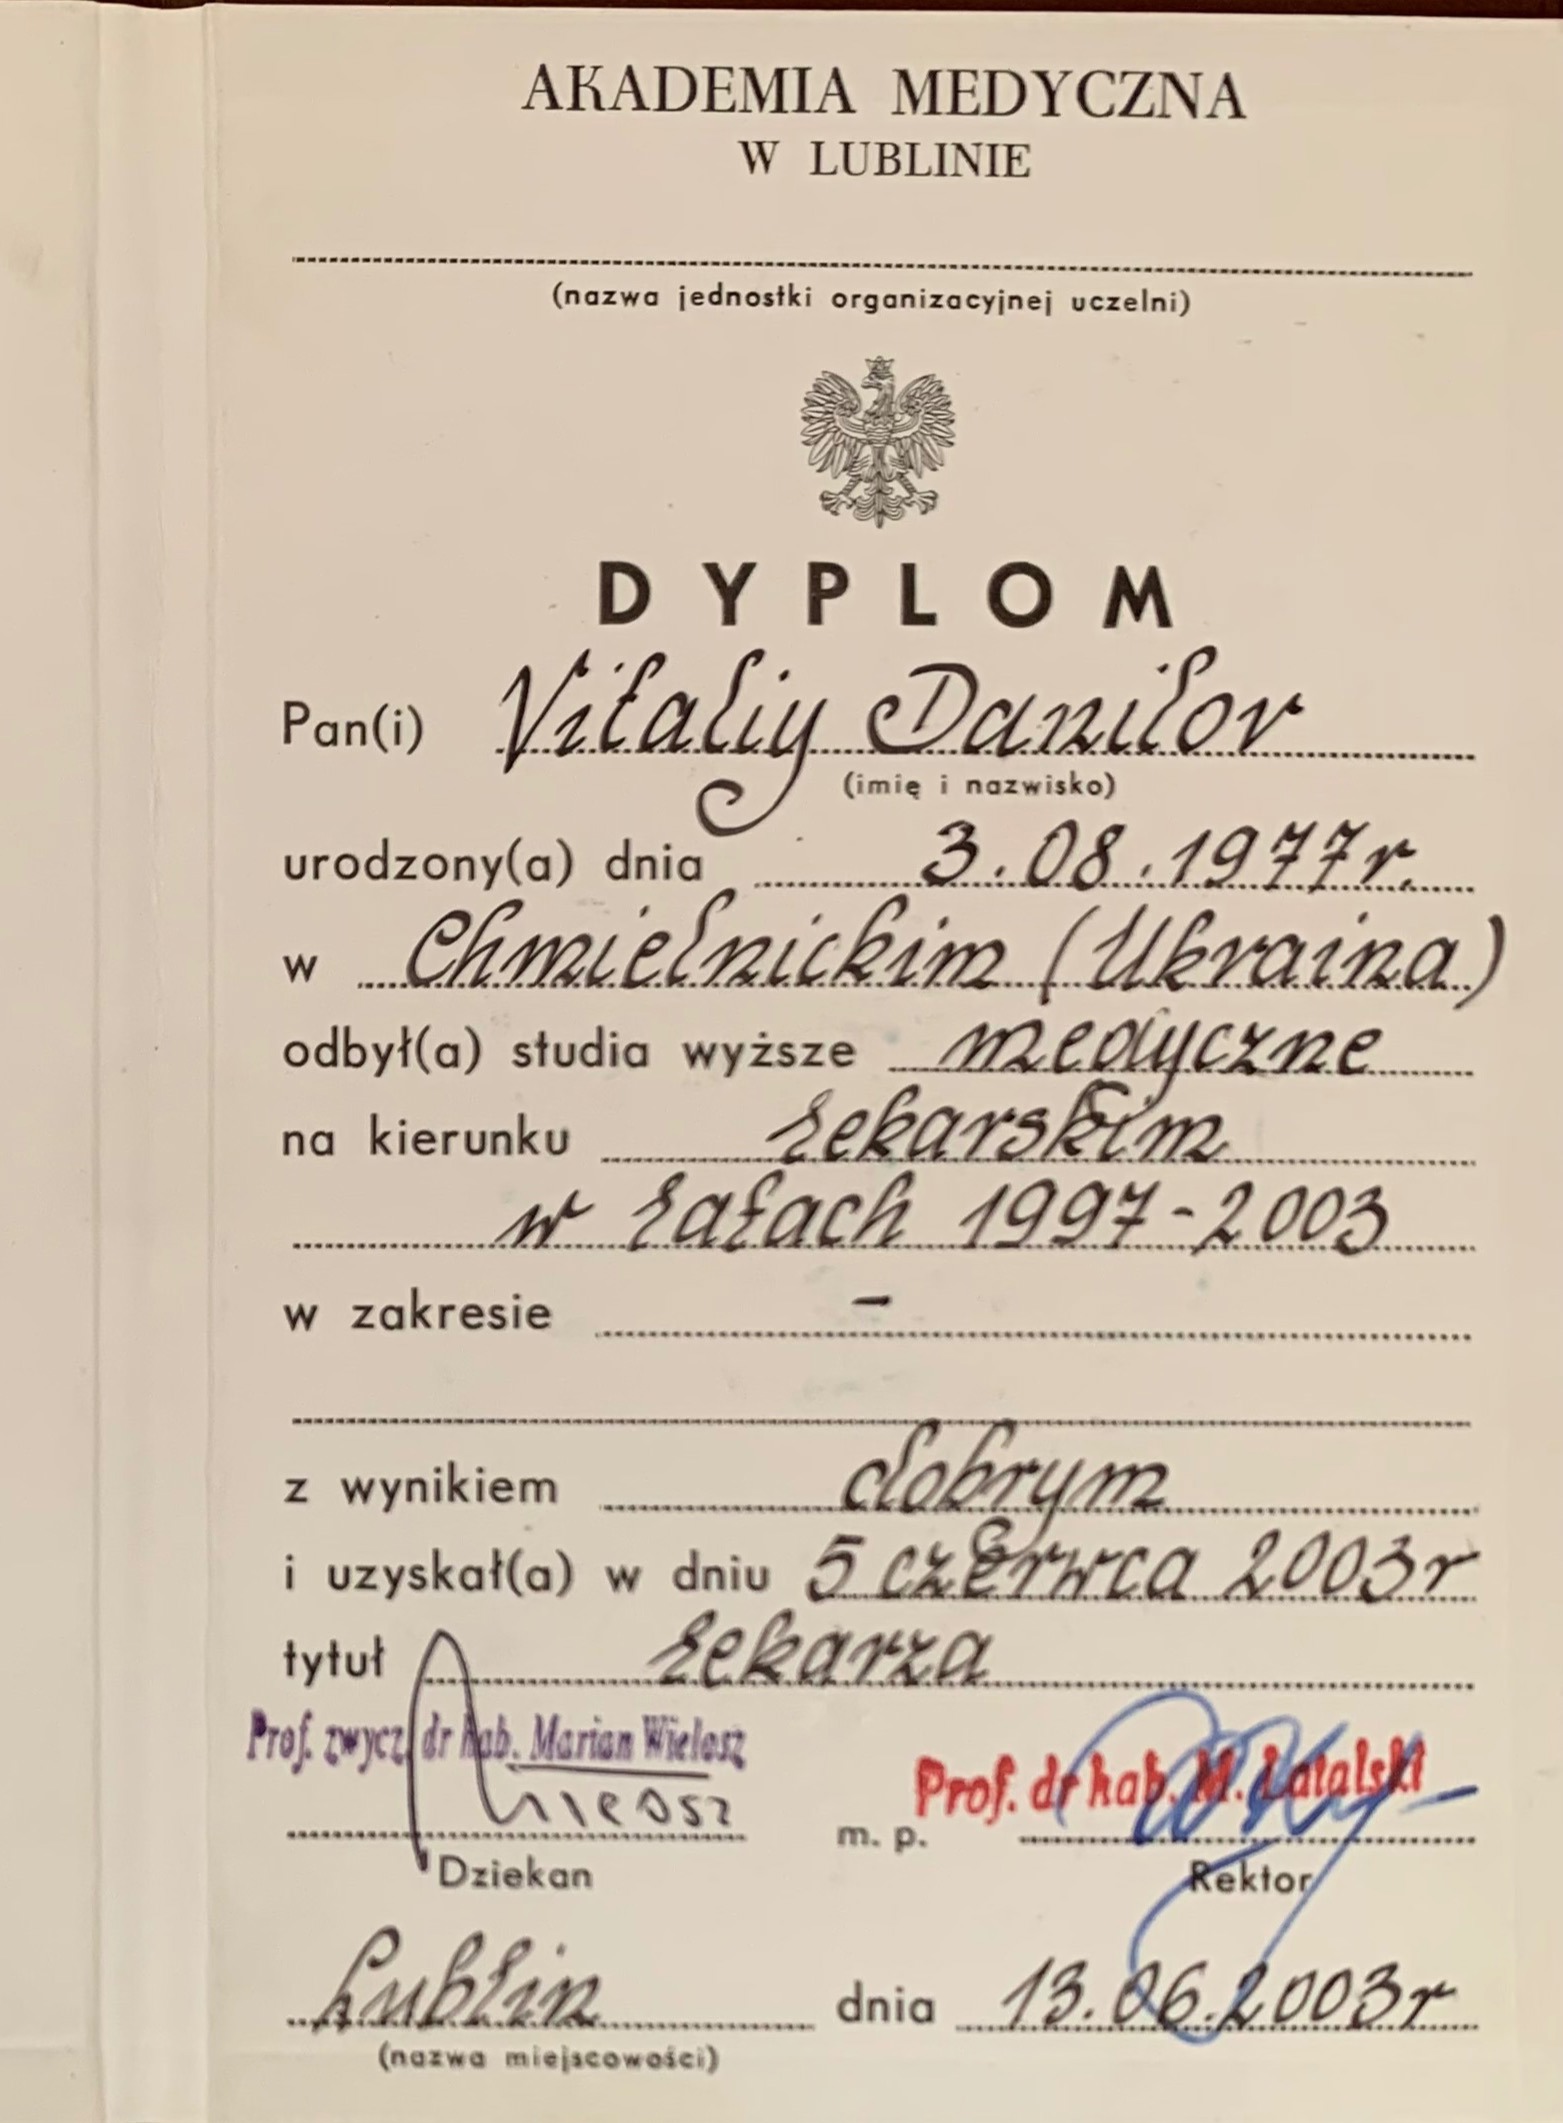 AKADEMIA MEDYCZNA
W LUBLINIE
(nazwa jednostki organizacyjnej uczelni)
DYPLOM
Pan(i) Vitaliy Danilov
(imię i nazwisko)
urodzony(a) dnia 3.08.1977r.
w Chmielnickim (Ukraina)
odbył(a) studia wyższe medyczne
na kierunku lekarskim
w latach 1997-2003
w zakresie -
z wynikiem dobrym
i uzyskał(a) w dniu 5 czerwca 2003r
tytuł lekarza
Prof. zwycz. dr hab. Marian Wielosz
Prof. dr hab. M. Latalski
m. p.
Dziekan
Rektor
Lublin dnia 13.06.2003r
(nazwa miejscowości)